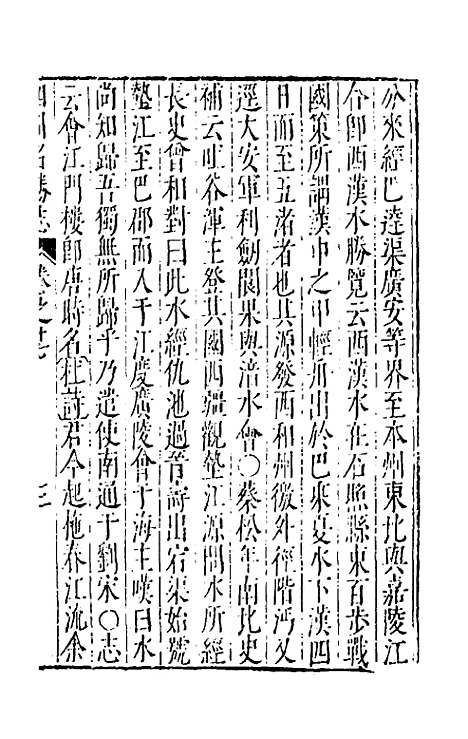 分來經巴達渠廣安等界至本州東北與嘉陵江
合即西漢水勝覽云西漢水在石照縣東百步戰
國策所謂漢中之甲輕舟出於巴乘夏水下漢四
日而至五渚者也其源發西和州徼外徑階沔又
逕大安軍利劍閬果與涪水會○蔡松年南北史
補云吐谷渾王登其國西疆觀墊江源問水所經
長史曾和對曰此水經仇池過晉壽出宕渠始號
墊江至巴郡而入于江度廣陵會于海主嘆曰水
尚知歸吾獨無所歸乎乃遣使南通于劉宋○志
云會江門樓即唐時名杜詩君今起柂春江流余
四川名勝志 卷之十七 三